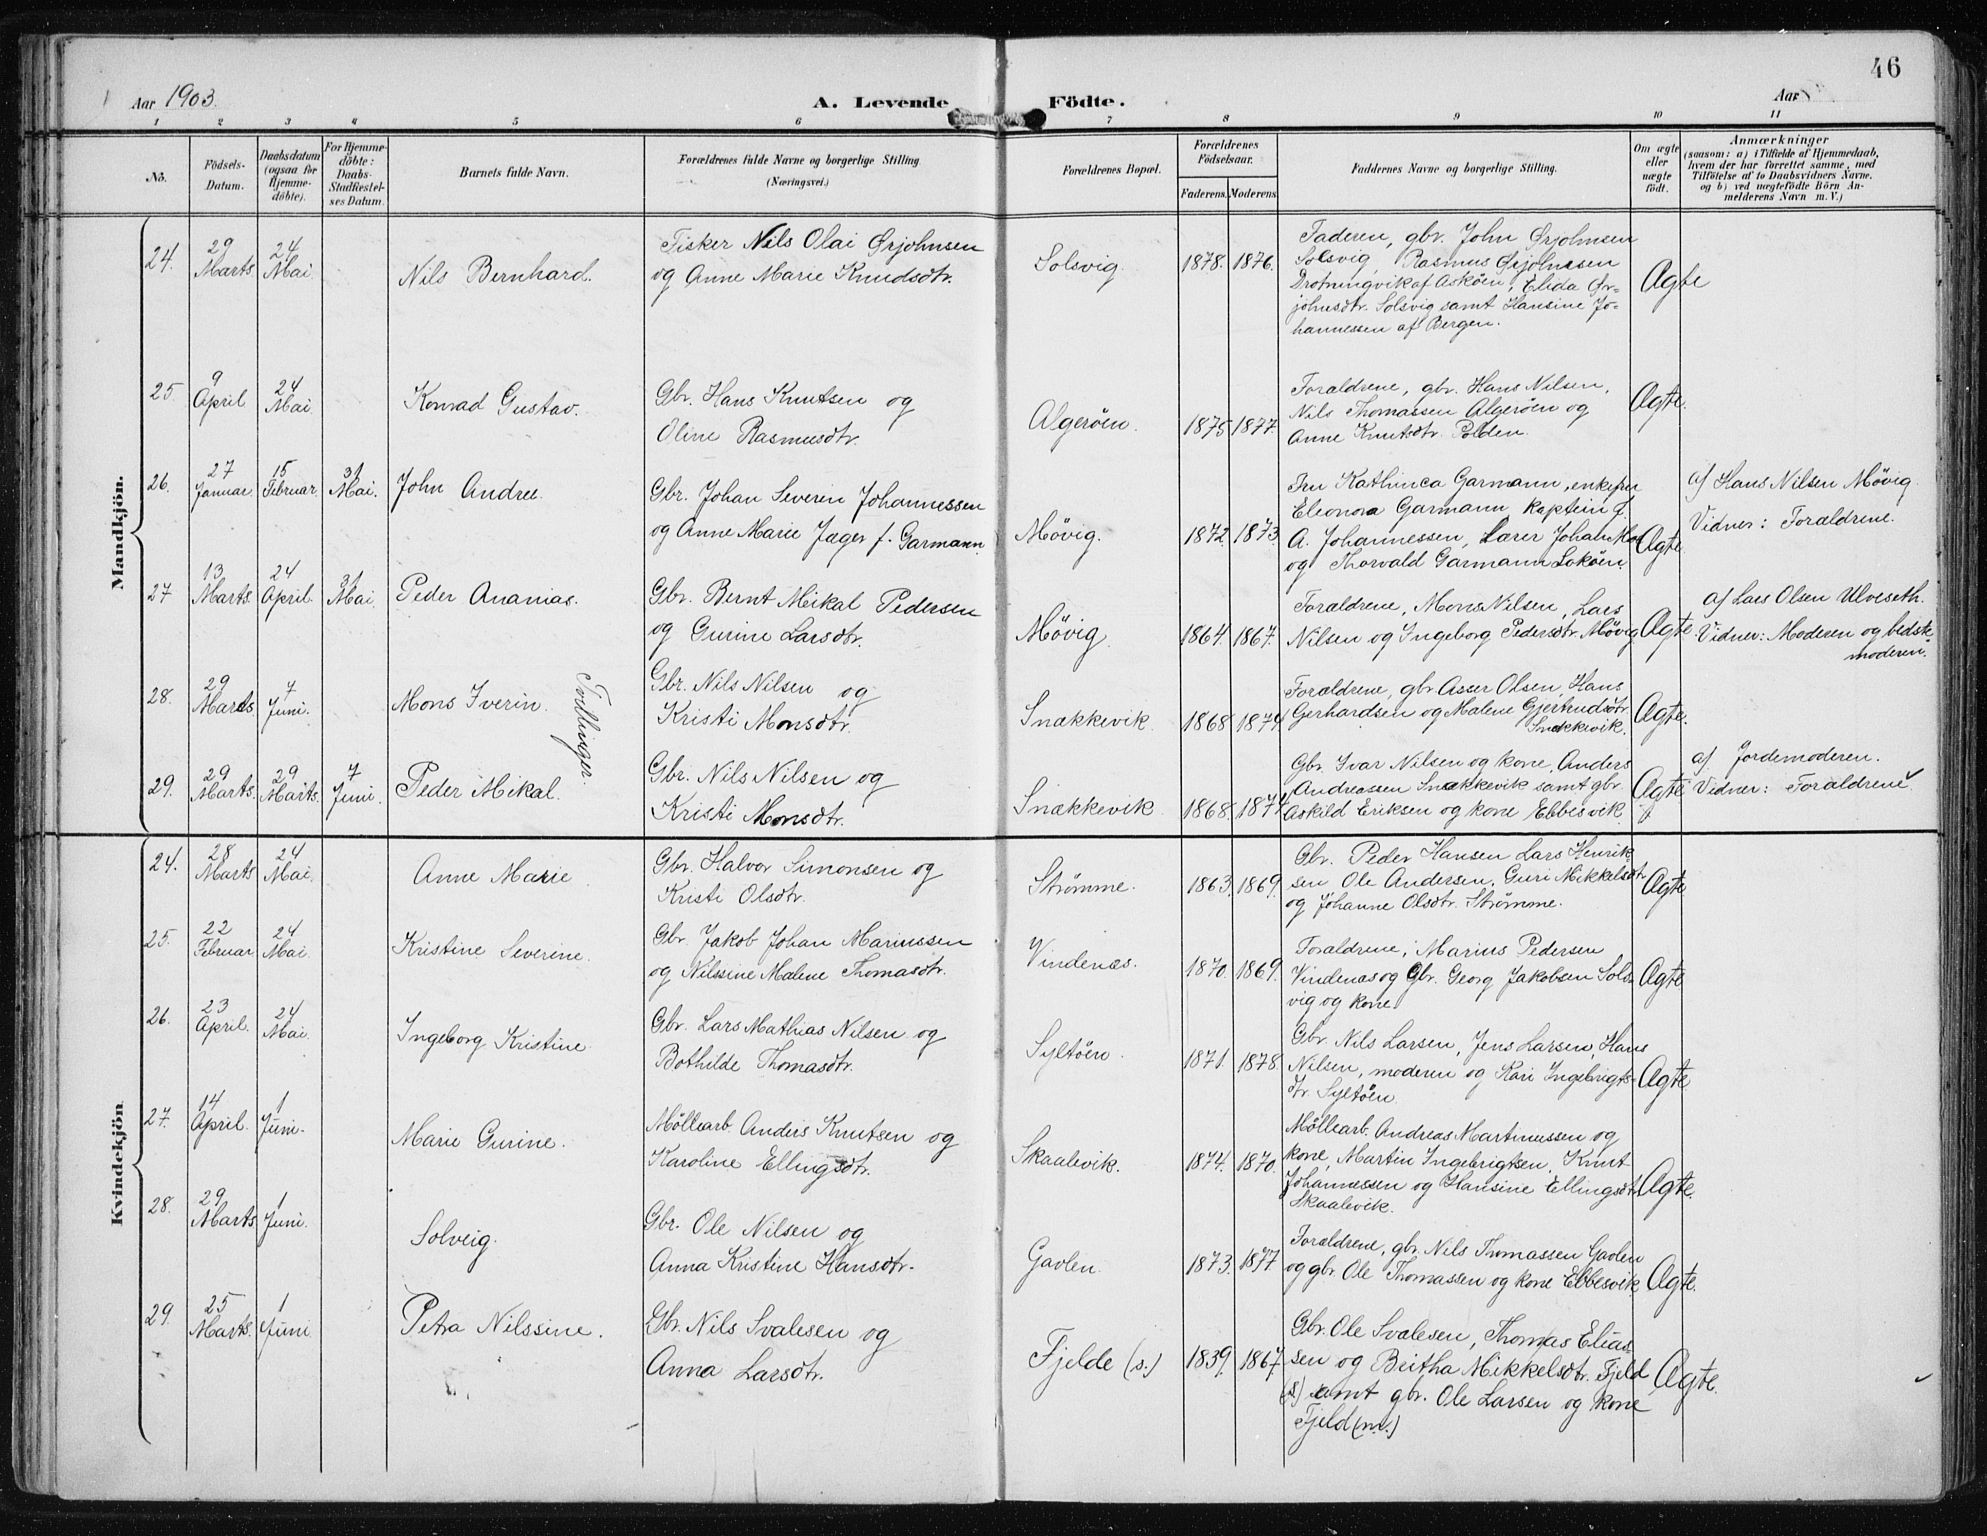 46
Aar 1903.
A. Levende Födte.
Aar
1 2 3 4 5 6 7 8 9 10 11
No.
Födsels-Datum.
Daabsdatum (ogsaa for Hjemme-döbte).
For Hjemme-döbte: Daabs-Stadfæstel-ses Datum.
Barnets fulde Navn.
Forældrenes fulde Navne og borgerlige Stilling.
(Næringsvei.)
Forældrenes Bopæl.
Forældrenes Födselsaar.
Faderens. Moderens.
Faddernes Navne og borgerlige Stilling.
Om ægte eller uægte födt.
Anmærkninger
(saasom: a) i Tilfælde af Hjemmedaab, hvem der har forrettet samme, med Tilföielse af to Daabsvidners Navne, og b) ved uægtefödte Börn An-melderens Navn m. V.)
Mandkjön.
24. 29 Marts. 24 Mai
Nils Bernhard.
Fisker Nils Olai Ørjohnsen
og Anne Marie Knudsdtr.
Solsvig. 1878. 1876.
Faderen, gbr. John Ørjohnsen
Solsvig, Rasmus Ørjohnsen
Drotningvik af Askøen, Elida Ør-
johnsdtr. Solsvig samt Hansine Jo-
hannessen af Bergen.
Ægte
25. 9 April 24 Mai.
Konrad Gustav.
Gbr. Hans Knutsen og
Oline Rasmusdtr.
Algerøen. 1875 1877.
Forældrene, gbr. Hans Nilsen,
Nils Thomassen Algerøen og
Anne Knutsdtr. Polden.
Ægte.
26. 27 Januar. 15 Februar. 31 Mai.
John Andree.
Gbr. Johan Severin Johannessen
og Anne Marie Jæger f. Garmann.
Møvig. 1872. 1873
Fru Kathinca Garmann, enkefru
Eleonora Garmann Kaptein f.
A. Johannessen, Lærer Johan
og Thorvald Garmann Lokøen
Ægte.
a) Hans Nilsen Møvig.
Vidner: Forældrene.
27 13 Marts. 24 April. 31 Mai.
Peder Ananias.
Gbr. Bernt Mikal Pedersen
og Gurine Larsdtr.
Møvig 1864. 1867.
Forældrene, Mons Nilsen, Lars
Nilsen og Ingeborg Pedersdtr. Møvig
Ægte.
a) Lars Olsen Ulveseth.
Vidner: Moderen og bedste-
moderen.
28. 29 Marts. 7 Juni.
Mons Iverin.
Tvillinger.
Gbr. Nils Nilsen og
Kristi Monsdtr.
Snækkevik. 1868. 1874
Forældrene, gbr Asser Olsen, Hans
Gerhardsen og Malene Gjertrudsdtr.
Snækkevik.
Ægte.
29. 29 Marts. 29 Marts. 7 Juni.
Peder Mikal.
Gbr. Nils Nilsen og
Kristi Monsdtr.
Snækkevik 1868. 1874
Gbr. Ivar Nilsen og kone, Anders
Andreassen Snækkevik samt gbr.
Askild Eriksen og kone Ebbesvik
Ægte
a) Jordemoderen.
Vidner: Forældrene
Kvindekjön
24. 28 Marts 24 Mai.
Anne Marie
Gbr. Halvor Simonsen og
Kristi Olsdtr.
Strømme. 1863. 1869.
Gbr. Peder Hansen Lars Henrik-
sen Ole Andersen, Guri Mikkelsdtr
og Johanne Olsdtr. Strømme.
Ægte
25. 22 Februar 24 Mai.
Kristine Severine.
Gbr. Jakob Johan Mariussen
og Nilssine Malene Thomasdtr.
Vindenæs. 1870. 1869.
Forældrene, Marius Pedersen
Vindenæs og Gbr. Georg Jakobsen Sols-
vig og kone.
Ægte
26. 23 April. 24 Mai.
Ingeborg Kristine.
Gbr. Lars Mathias Nilsen og
Bothilde Thomasdtr.
Syltøen. 1871. 1878.
Gbr. Nils Larsen, Jens Larsen, Hans
Nilsen, moderen og Kari Ingebrigts-
dtr. Syltøen.
Ægte
27. 14 April. 1 Juni.
Marie Gurine.
Møllearb. Anders Knutsen og
Karoline Ellingsdtr.
Skaalevik. 1874. 1870.
Møllearb. Andreas Martinussen og
kone, Martin Ingebrigtsen, Knut
Johannessen og Hansine Ellingsdtr.
Skaalevik.
Ægte.
28. 29 Marts 1 Juni.
Solveig.
Gbr. Ole Nilsen og
Anna Kristine Hansdtr.
Gavlen. 1873. 1877
Forældrene, gbr. Nils Thomassen Gavlen
og gbr. Ole Thomassen og kone Ebbesvik
Ægte.
29. 25 Marts. 1 Juni
Petra Nilssine.
Gbr. Nils Svalesen og
Anna Larsdtr.
Fjelde (s.) 1839. 1867.
Gbr. Ole Svalesen, Thomas Elias-
sen og Britha Mikkelsdtr. Fjeld
(s.) samt gbr. Ole Larsen og kone
Fjeld (m.)
Ægte.